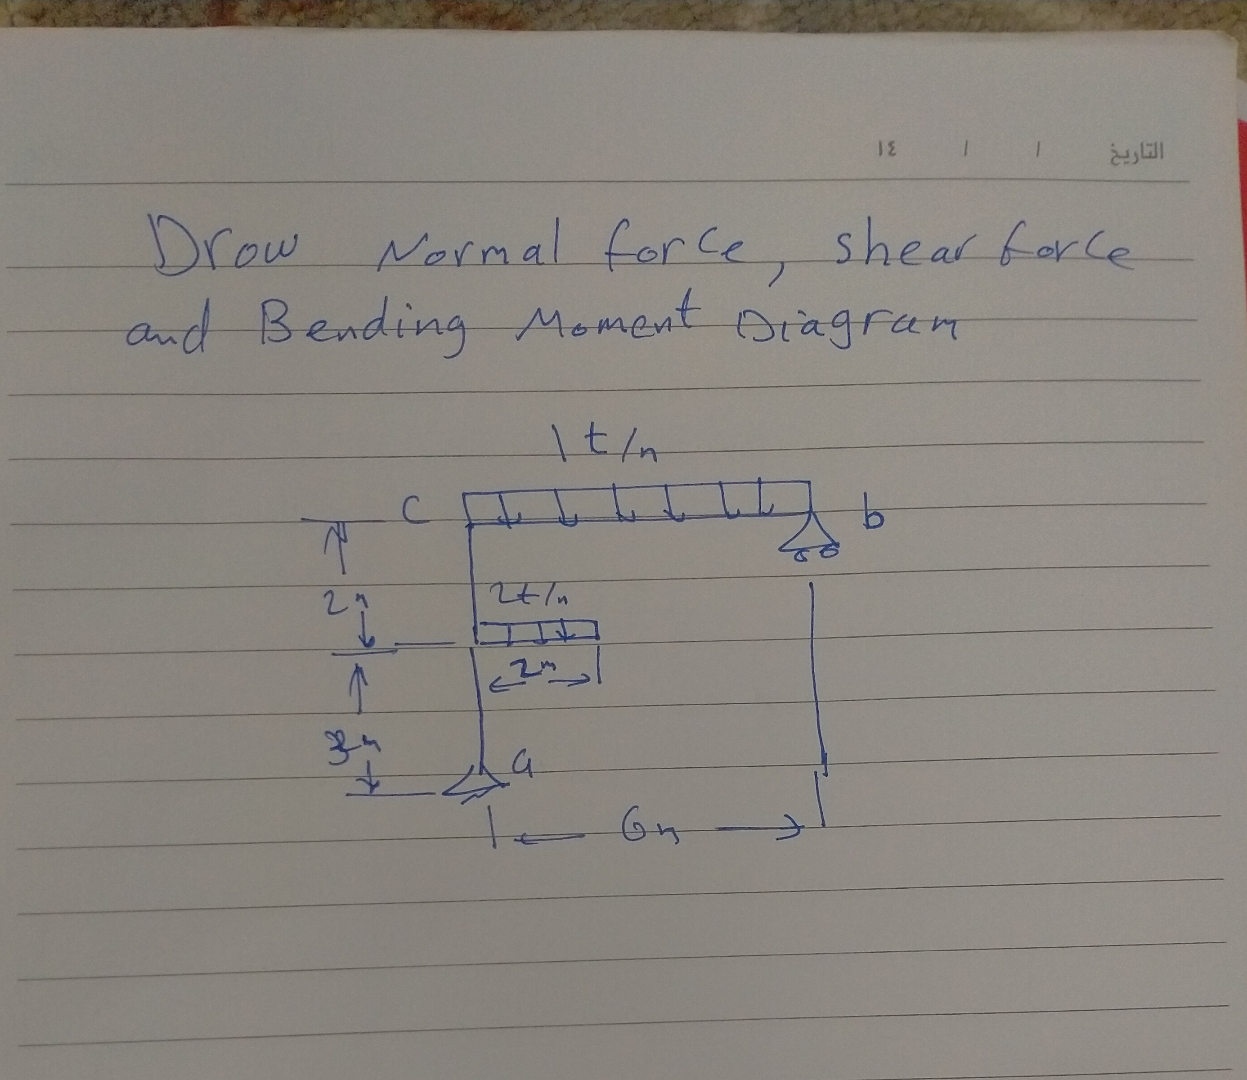 التاريخ / / ١٤
Drow Normal force, shear force
and Bending Moment Diagram
1 t/n
C b
2n 2t/n
2m
3n a
6n